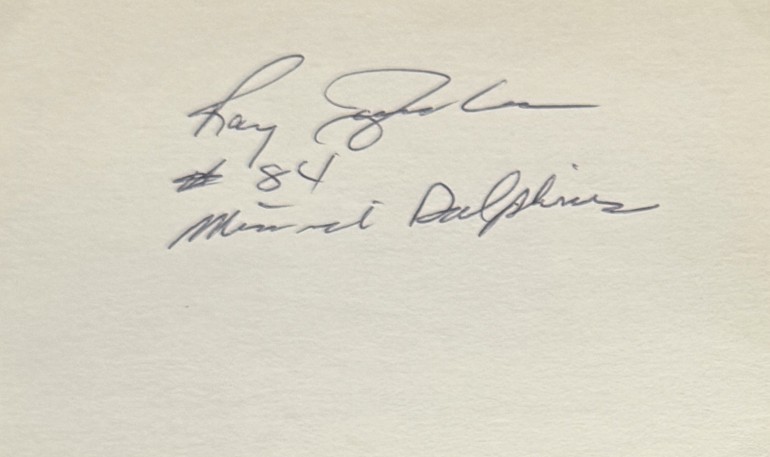 Ray
# 84
Miami Dolphins